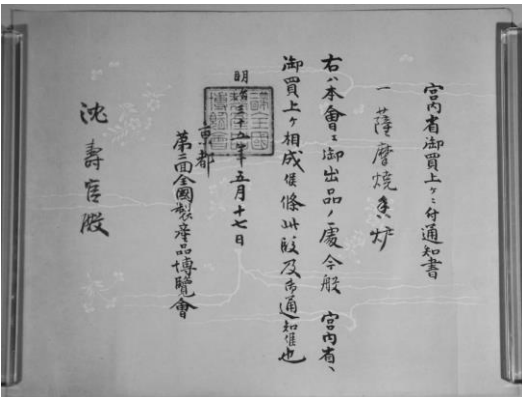 宮内省御買上ケニ付通知書
一 薩摩焼香炉
右ハ本會ニ御出品ノ處今般 宮内省ヘ
御買上ケ相成候條此段及御通知候也
明治三十五年五月十七日
京都
第二回全國製産品博覽會
沈壽官殿